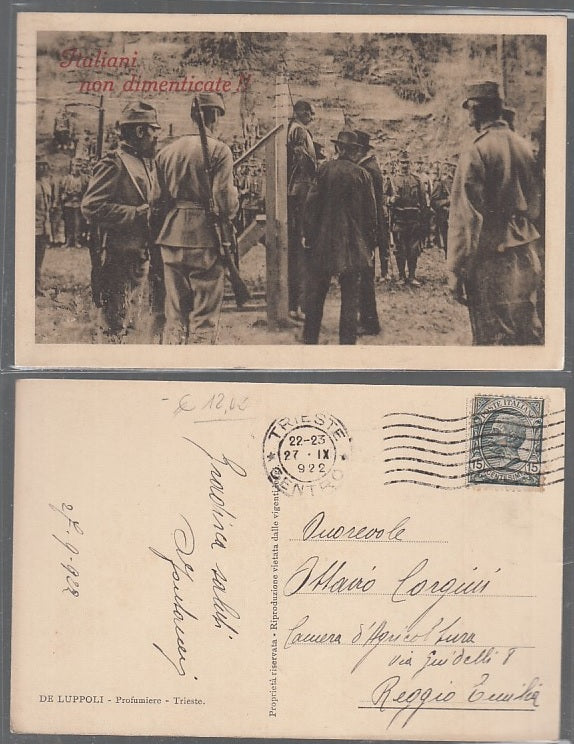 Italiani
non dimenticate!!
€ 12,00
TRIESTE
22-23
27 · IX
922
CENTRO
POSTE ITALIANE
15 15
Gradisca saluti
27-9-922
Onorevole
Ottavio Corgini
Camera d'Agricoltura
via Guidelli 8
Reggio Emilia
Proprietà riservata - Riproduzione vietata dalle vigenti
DE LUPPOLI - Profumiere - Trieste.